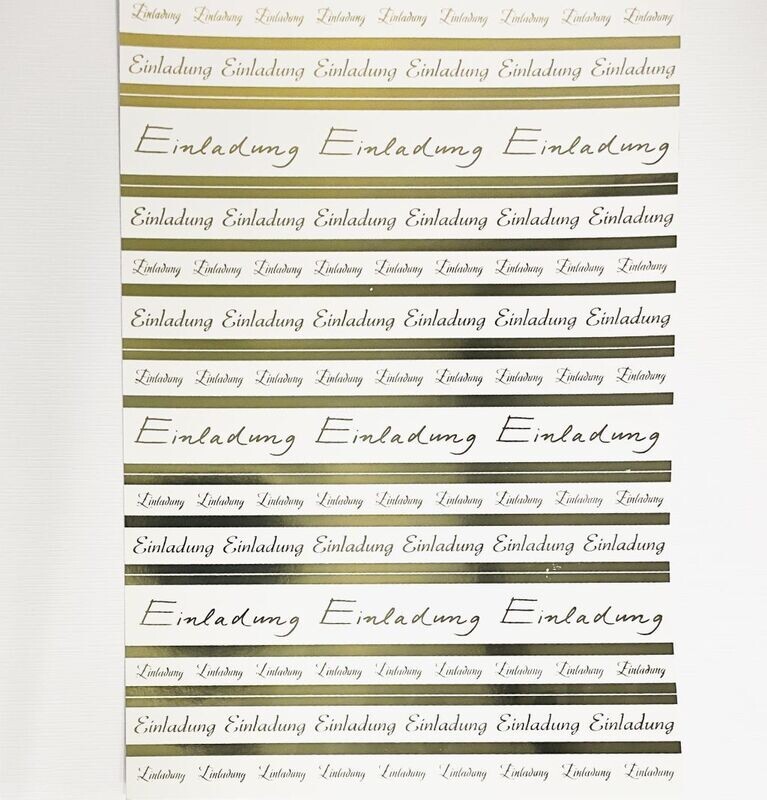 Einladung Einladung Einladung Einladung Einladung Einladung Einladung Einladung Einladung
Einladung Einladung Einladung Einladung Einladung Einladung
Einladung Einladung Einladung
Einladung Einladung Einladung Einladung Einladung Einladung
Einladung Einladung Einladung Einladung Einladung Einladung Einladung Einladung Einladung
Einladung Einladung Einladung Einladung Einladung Einladung
Einladung Einladung Einladung Einladung Einladung Einladung Einladung Einladung Einladung
Einladung Einladung Einladung
Einladung Einladung Einladung Einladung Einladung Einladung Einladung Einladung Einladung
Einladung Einladung Einladung Einladung Einladung Einladung
Einladung Einladung Einladung
Einladung Einladung Einladung Einladung Einladung Einladung Einladung Einladung Einladung
Einladung Einladung Einladung Einladung Einladung Einladung
Einladung Einladung Einladung Einladung Einladung Einladung Einladung Einladung Einladung